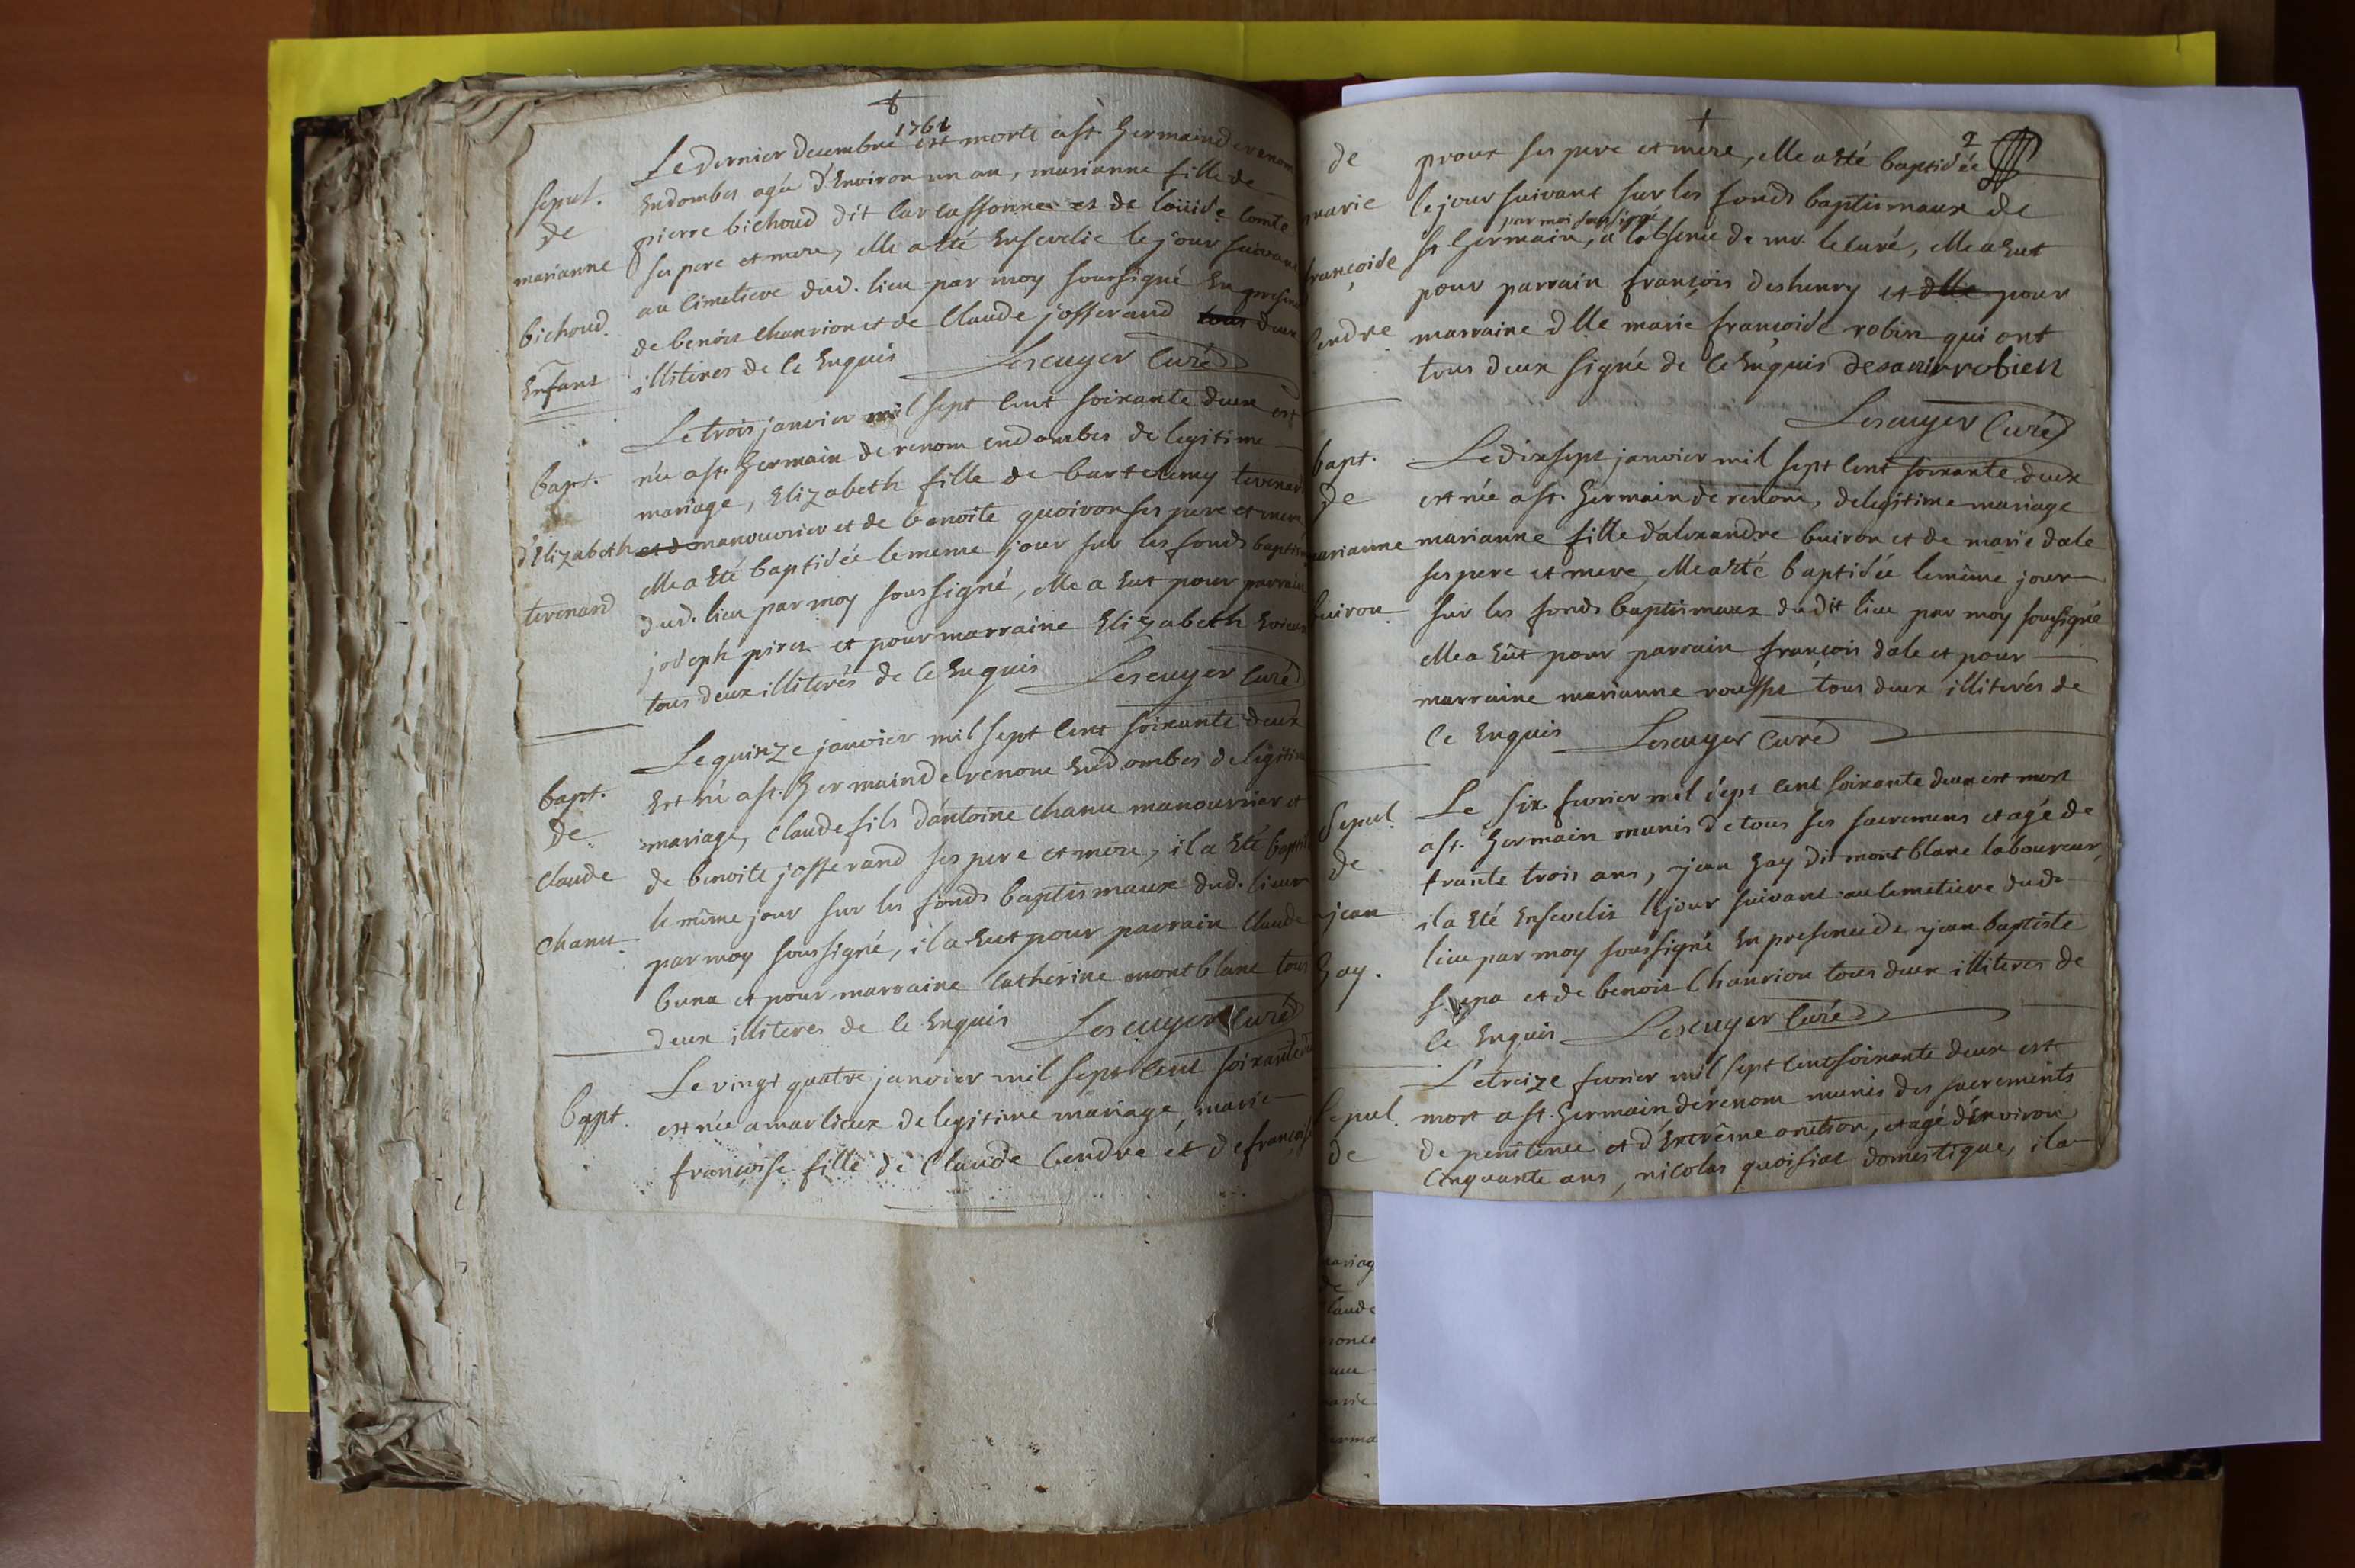 1761
Le dernier decembre est morte a st. Germain de renom
sepul. Endombes agée d'Environ un an, marianne fille de
de pierre bichoud dit Carcassonne et de loüise Comte
marianne ses pere et mere, elle a eté Ensevelie le jour suivant
au Cimetiere dud. lieu par moy soussigné En presence
bichoud. de benoit Chanrion et de Claude josserand tous deux
Enfant illiteres de ce Enquis Lescuyer Curé
Le trois janvier mil sept Cent soixante deux est
bapt. née a st. Germain de renom endombes de legitime
mariage, Elizabeth fille de bartelemy tevenard
d'Elizabeth et de manouvrier et de benoite quoiron ses pere et mere
elle a eté baptisée le meme jour sur les fonds baptis
tevenard dud. lieu par moy soussigné, elle a eut pour parrain
joseph piron et pour marraine Elizabeth
tous deux illiterés de ce Enquis Lescuyer Curé
Le quinze janvier mil sept Cent soixante deux
bapt. Est né a st. Germain de renom Endombes de legitime
de mariage, Claude fils d'antoine Chanu manouvrier et
Claude de benoite josserand ses pere et mere, il a eté baptisé
le même jour sur les fonds baptismaux dud. lieu
Chanu. par moy soussigné, il a eut pour parrain Claude
buna et pour marraine Catherine montblanc tous
deux illiteres de ce Enquis Lescuyer Curé
Le vingt quatre janvier mil sept Cent soixante
bapt. est née a marlieux de legitime mariage, marie
françoise fille de Claude Cendre et de françoise
2
de proux ses pere et mere, elle a eté baptisée
marie le jour suivant sur les fonds baptismaux de
par moi soussigné
françoise st Germain, a l'absence de mr. le curé, elle a Eut
pour parrain françois deshenry et dlle pour
Cendre marraine dlle marie françoise robin qui ont
tous deux signé de ce Enquis robien
Lescuyer Curé
bapt. Le dix sept janvier mil sept Cent soixante deux
de est née a st. Germain de renom, de legitime mariage
marianne marianne fille d'alexandre buiron et de marie dale
ses pere et mere, elle a eté baptisée le même jour
buiron sur les fonds baptismaux dudit lieu par moy soussigné
elle a Eût pour parrain françois dale et pour
marraine marianne rousse tous deux illiterés de
ce Enquis Lescuyer Curé
Sepul. Le six fevrier mil sept Cent soixante deux est mort
a st. Germain munis de tous ses sacremens et agé de
de trante trois ans, jean Gay dit montblanc laboureur,
jean il a eté Ensevelis le jour suivant au Cemetiere dud.
lieu par moy soussigné En presence de jean baptiste
Gay. et de benoit Chanrion tous deux illiteres de
ce Enquis Lescuyer Curé
Le treize fevrier mil sept Cent soixante deux est
Sepul. mort a st. Germain de renom munis des sacrements
de de penitence et d'Extrême onction, et agé d'Environ
Cinquante ans, nicolas quoisiat domestique, il a